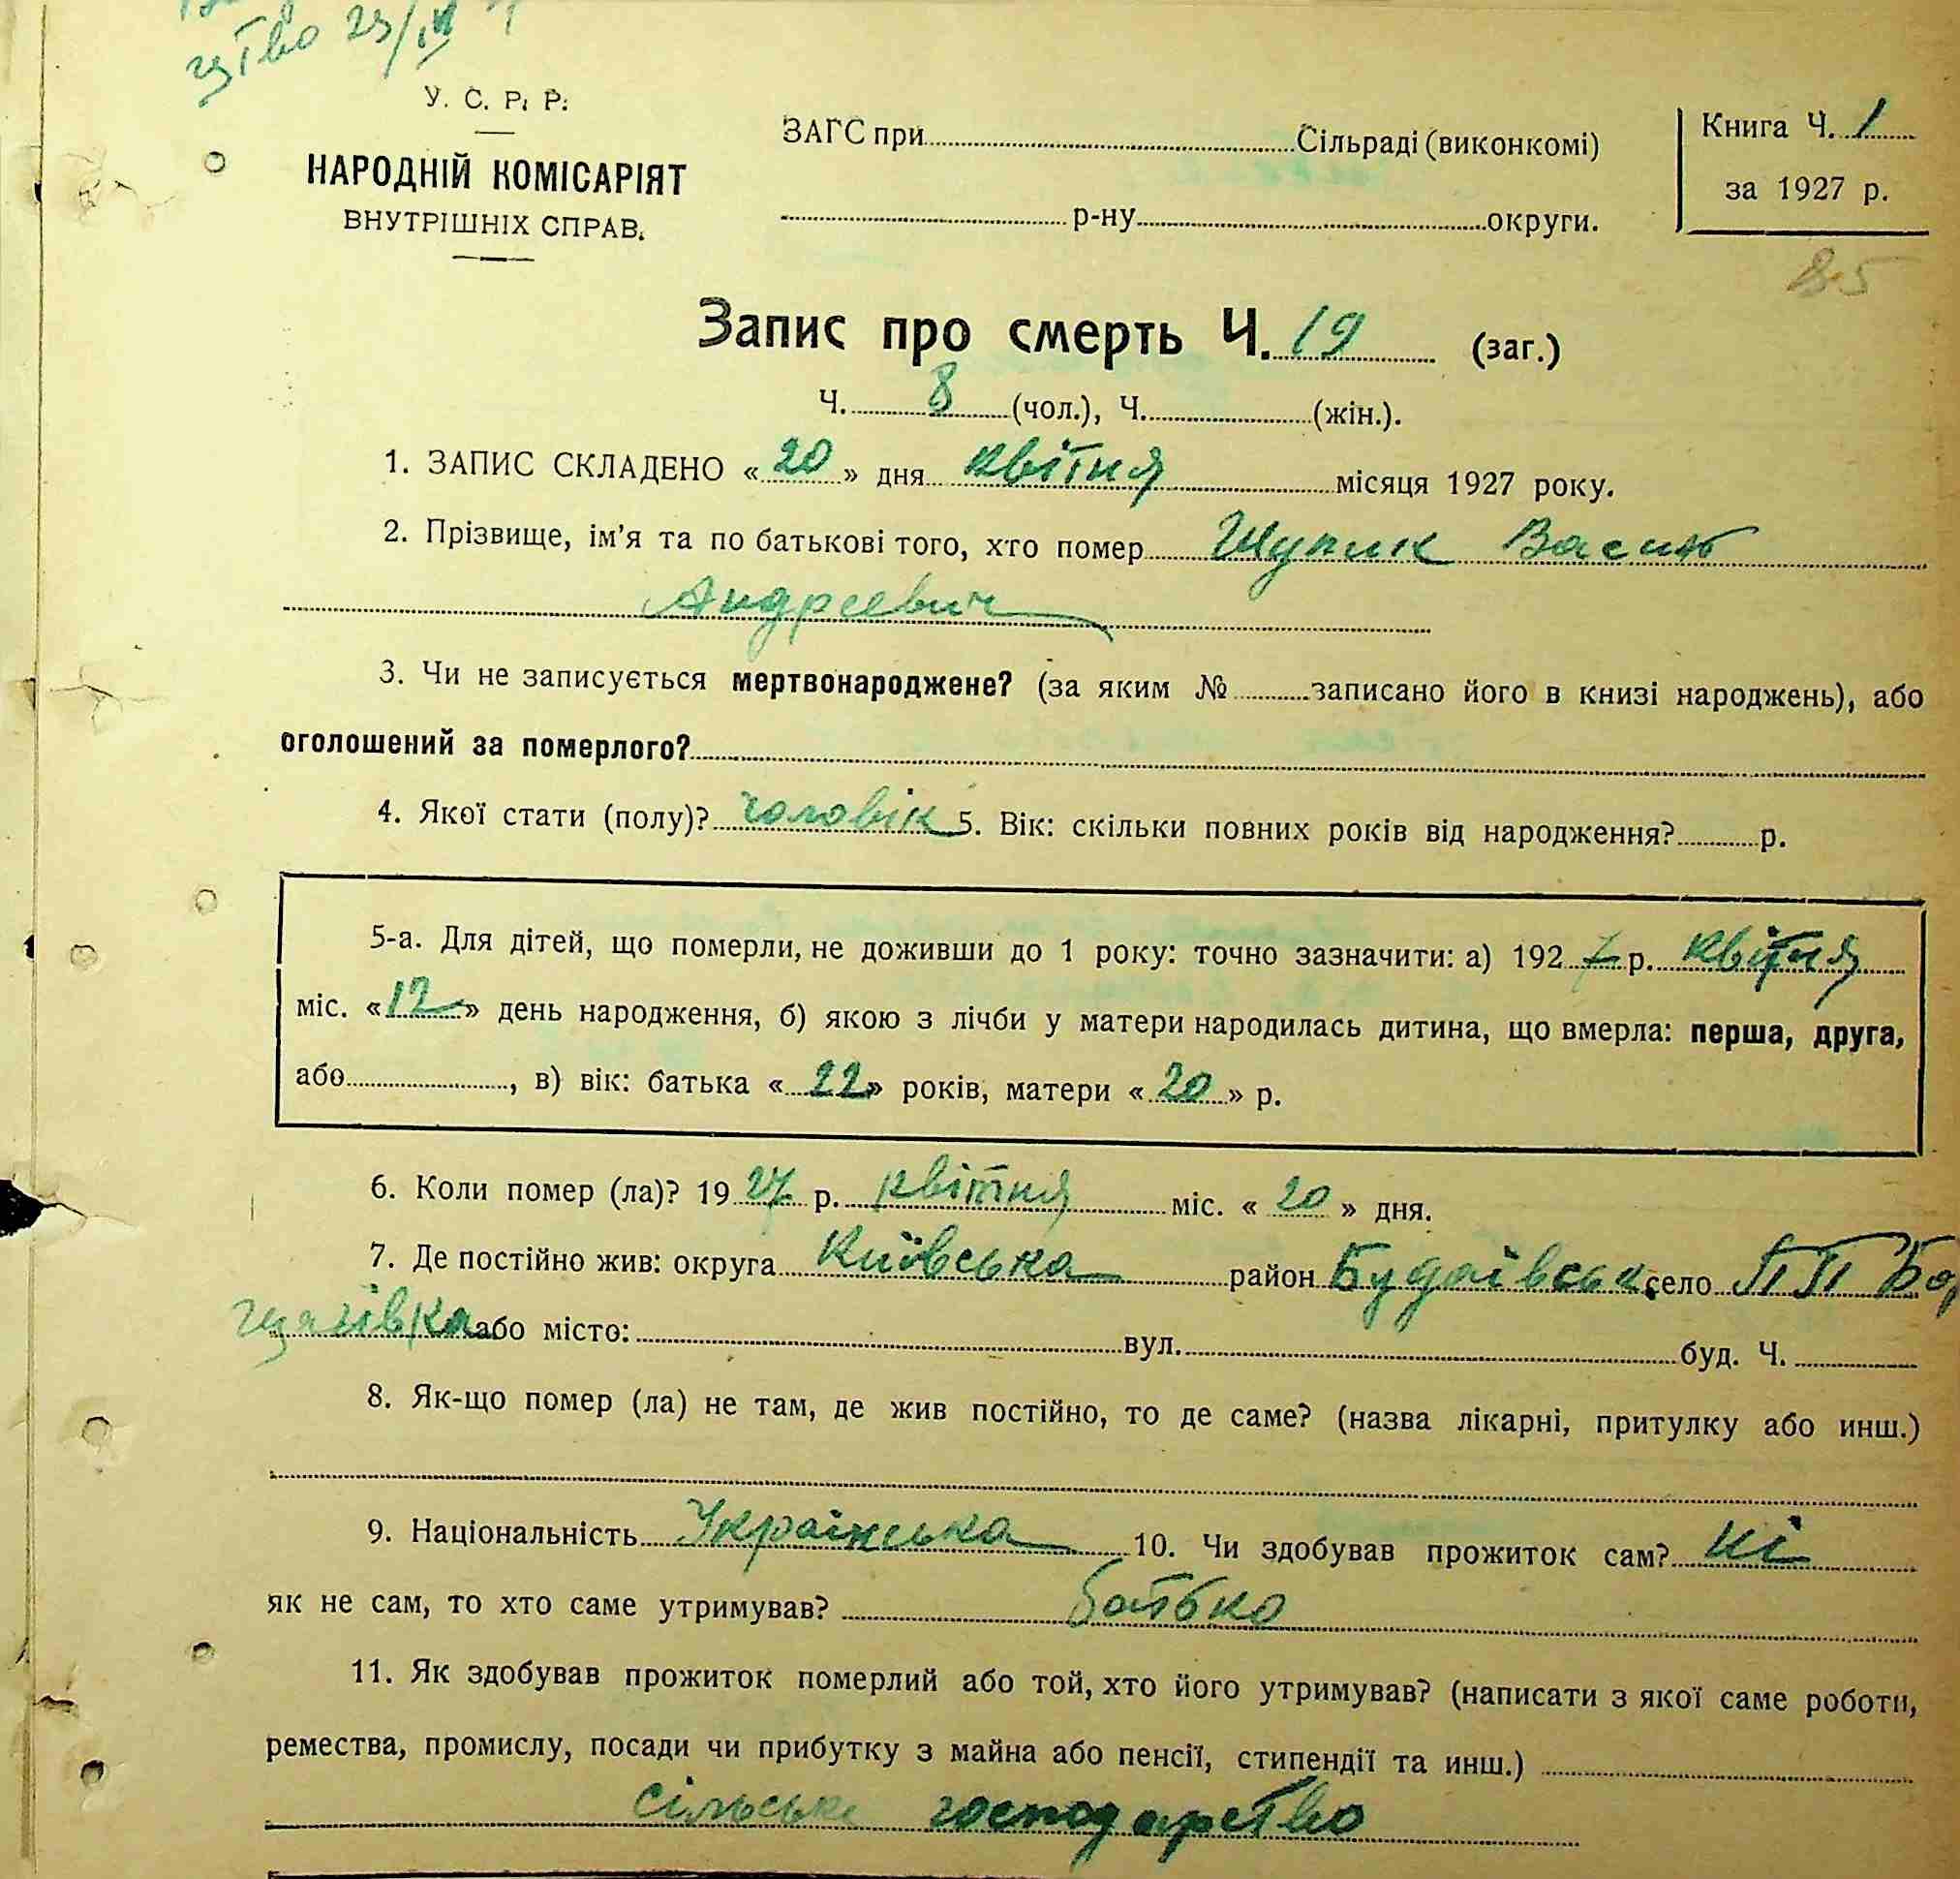 цтво 23/IV
У. С. Р. Р.
НАРОДНІЙ КОМІСАРІЯТ
ВНУТРІШНІХ СПРАВ.
ЗАГС при Сільраді (виконкомі)
р-ну округи.
Книга Ч. 1
за 1927 р.
85
Запис про смерть Ч. 19 (заг.)
Ч. 8 (чол.), Ч. (жін.).
1. ЗАПИС СКЛАДЕНО «20» дня квітня місяця 1927 року.
2. Прізвище, ім’я та по батькові того, хто помер Шупик Василь
Андреевич
3. Чи не записується мертвонароджене? (за яким № записано його в книзі народжень), або
оголошений за померлого?
4. Якої стати (полу)? чоловік 5. Вік: скільки повних років від народження? р.
5-а. Для дітей, що померли, не доживши до 1 року: точно зазначити: а) 1927 р. квітня
міс. «12» день народження, б) якою з лічби у матери народилась дитина, що вмерла: перша, друга,
або , в) вік: батька «22» років, матери «20» р.
6. Коли помер (ла)? 1927 р. квітня міс. «20» дня.
7. Де постійно жив: округа Київська район Будаївськ село П П Бор
щагівка або місто: вул. буд. Ч.
8. Як-що помер (ла) не там, де жив постійно, то де саме? (назва лікарні, притулку або инш.)
9. Національність Українська 10. Чи здобував прожиток сам? ні
як не сам, то хто саме утримував? батько
11. Як здобував прожиток померлий або той, хто його утримував? (написати з якої саме роботи,
ремества, промислу, посади чи прибутку з майна або пенсії, стипендії та инш.)
сільське господарство